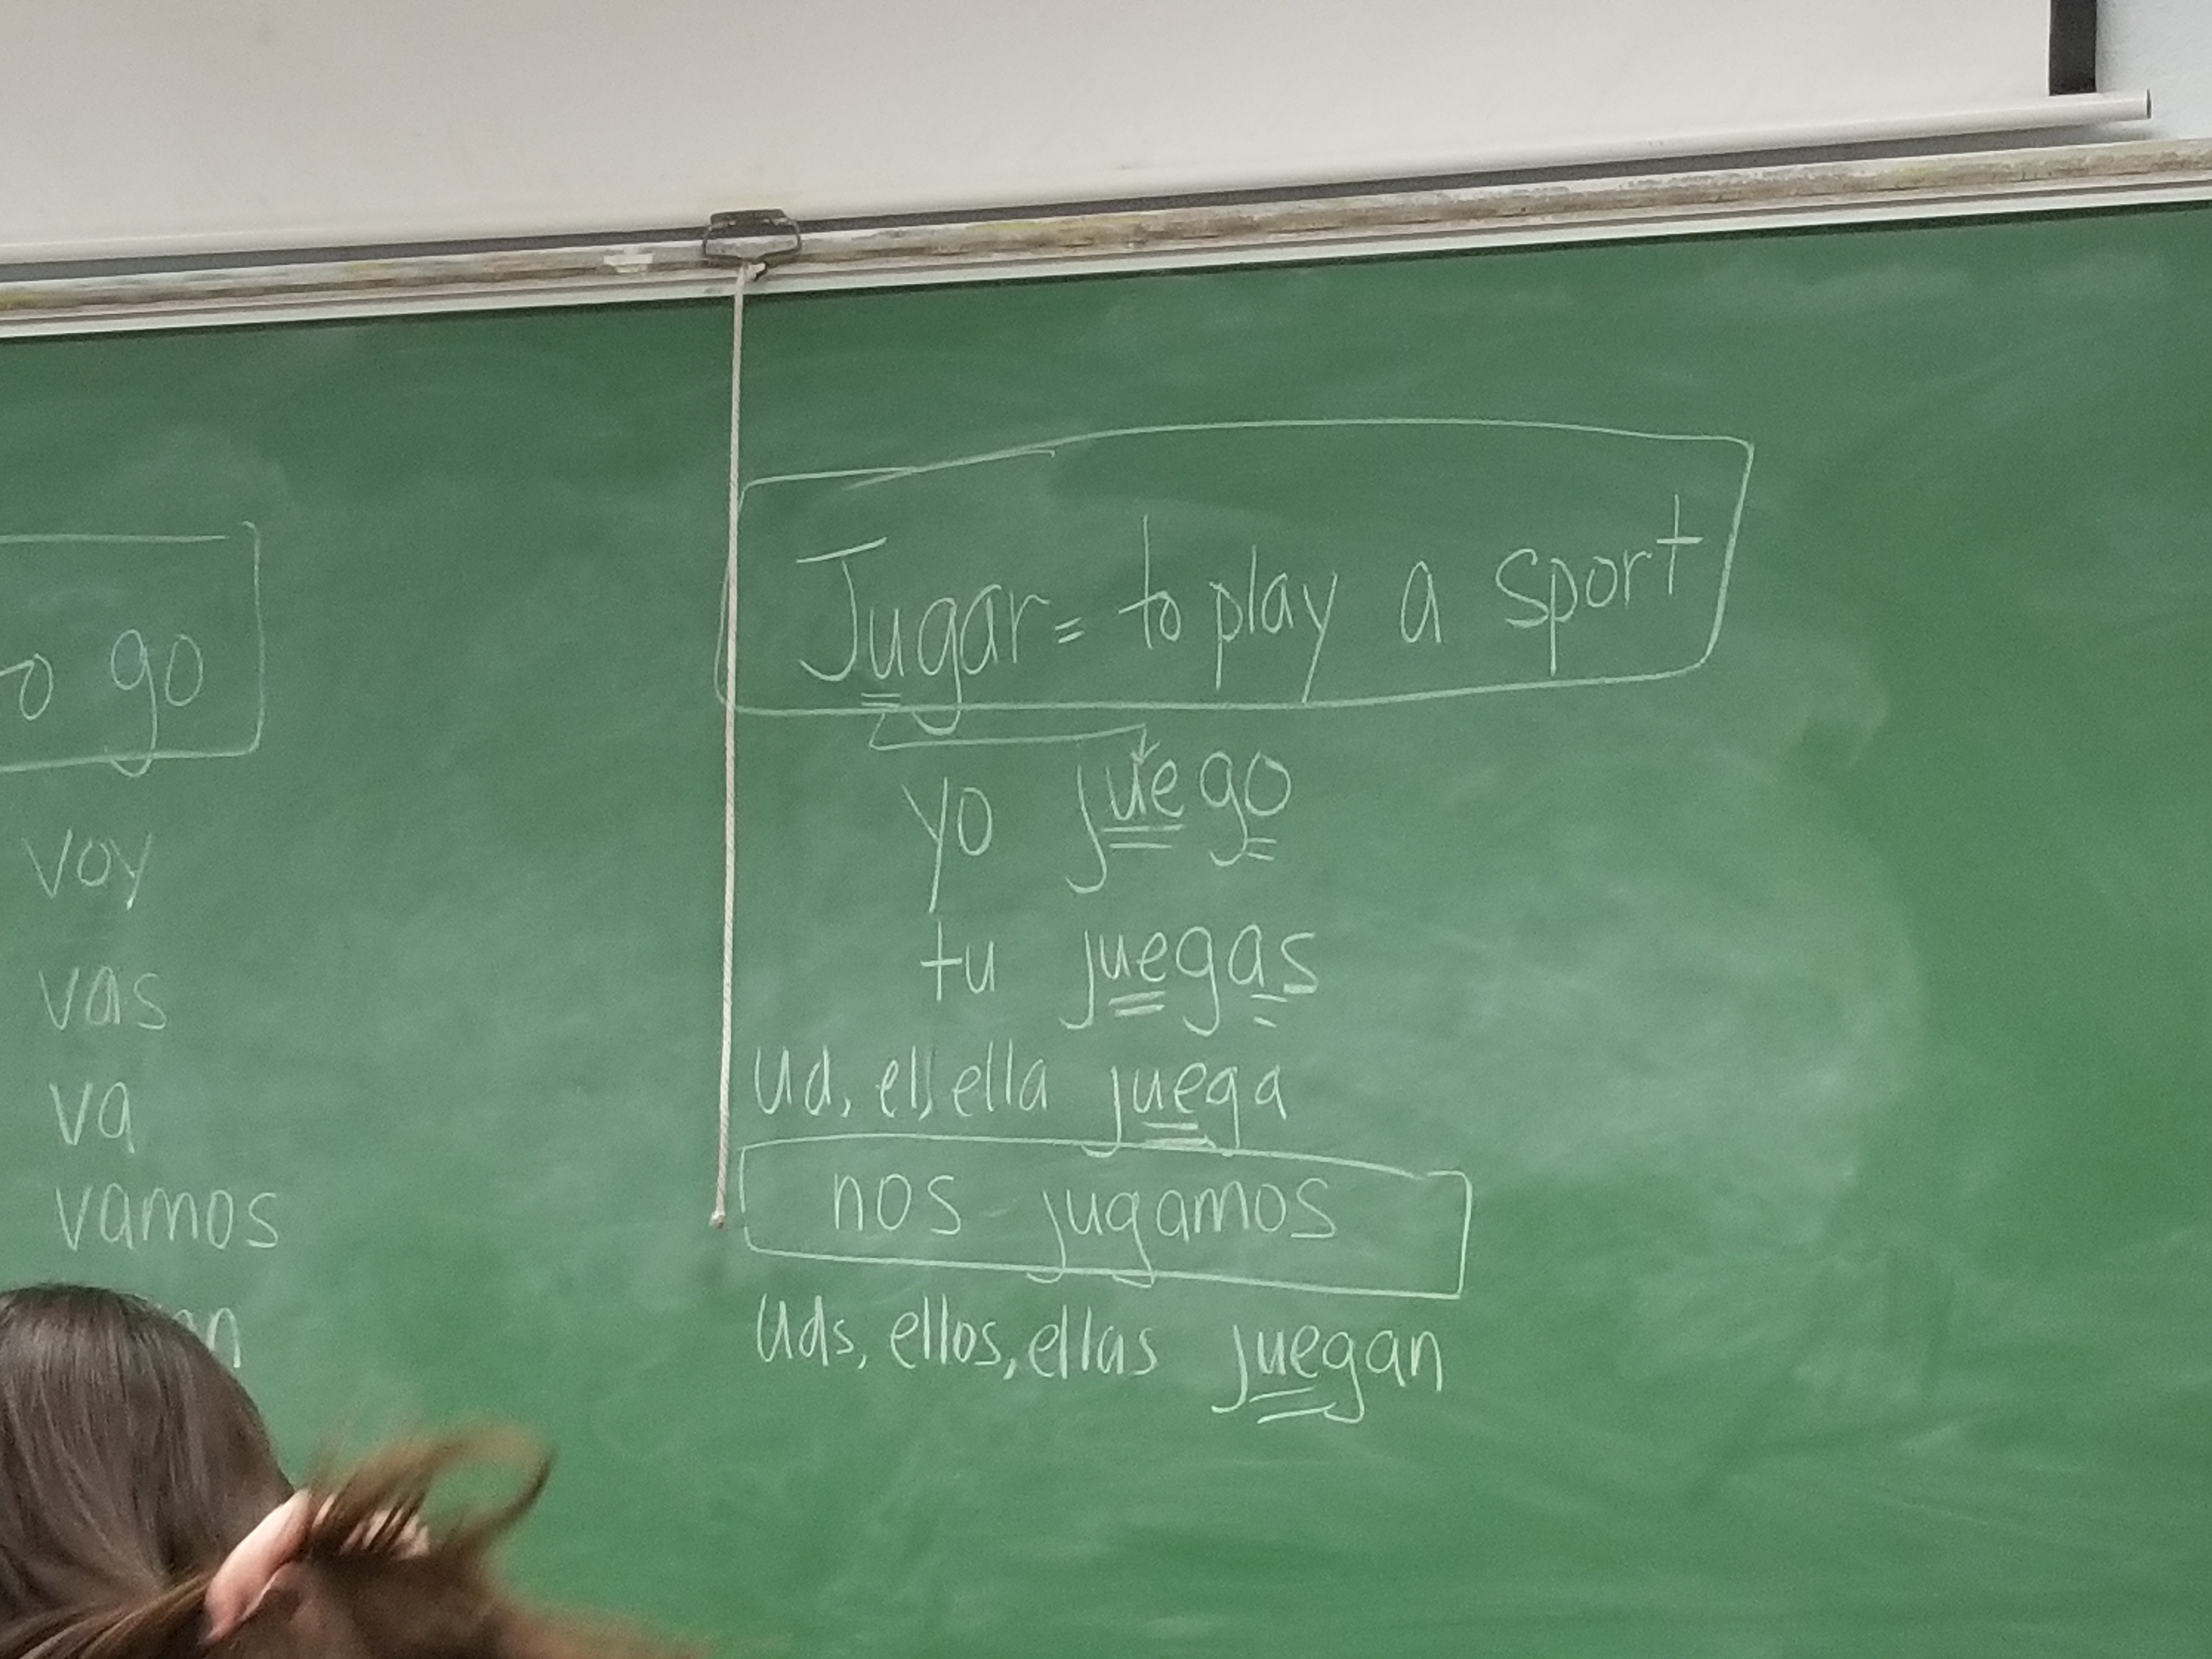 go
voy
vas
va
vamos
Jugar = to play a sport
yo juego
tu juegas
ud, el, ella juega
nos jugamos
uds, ellos, ellas juegan